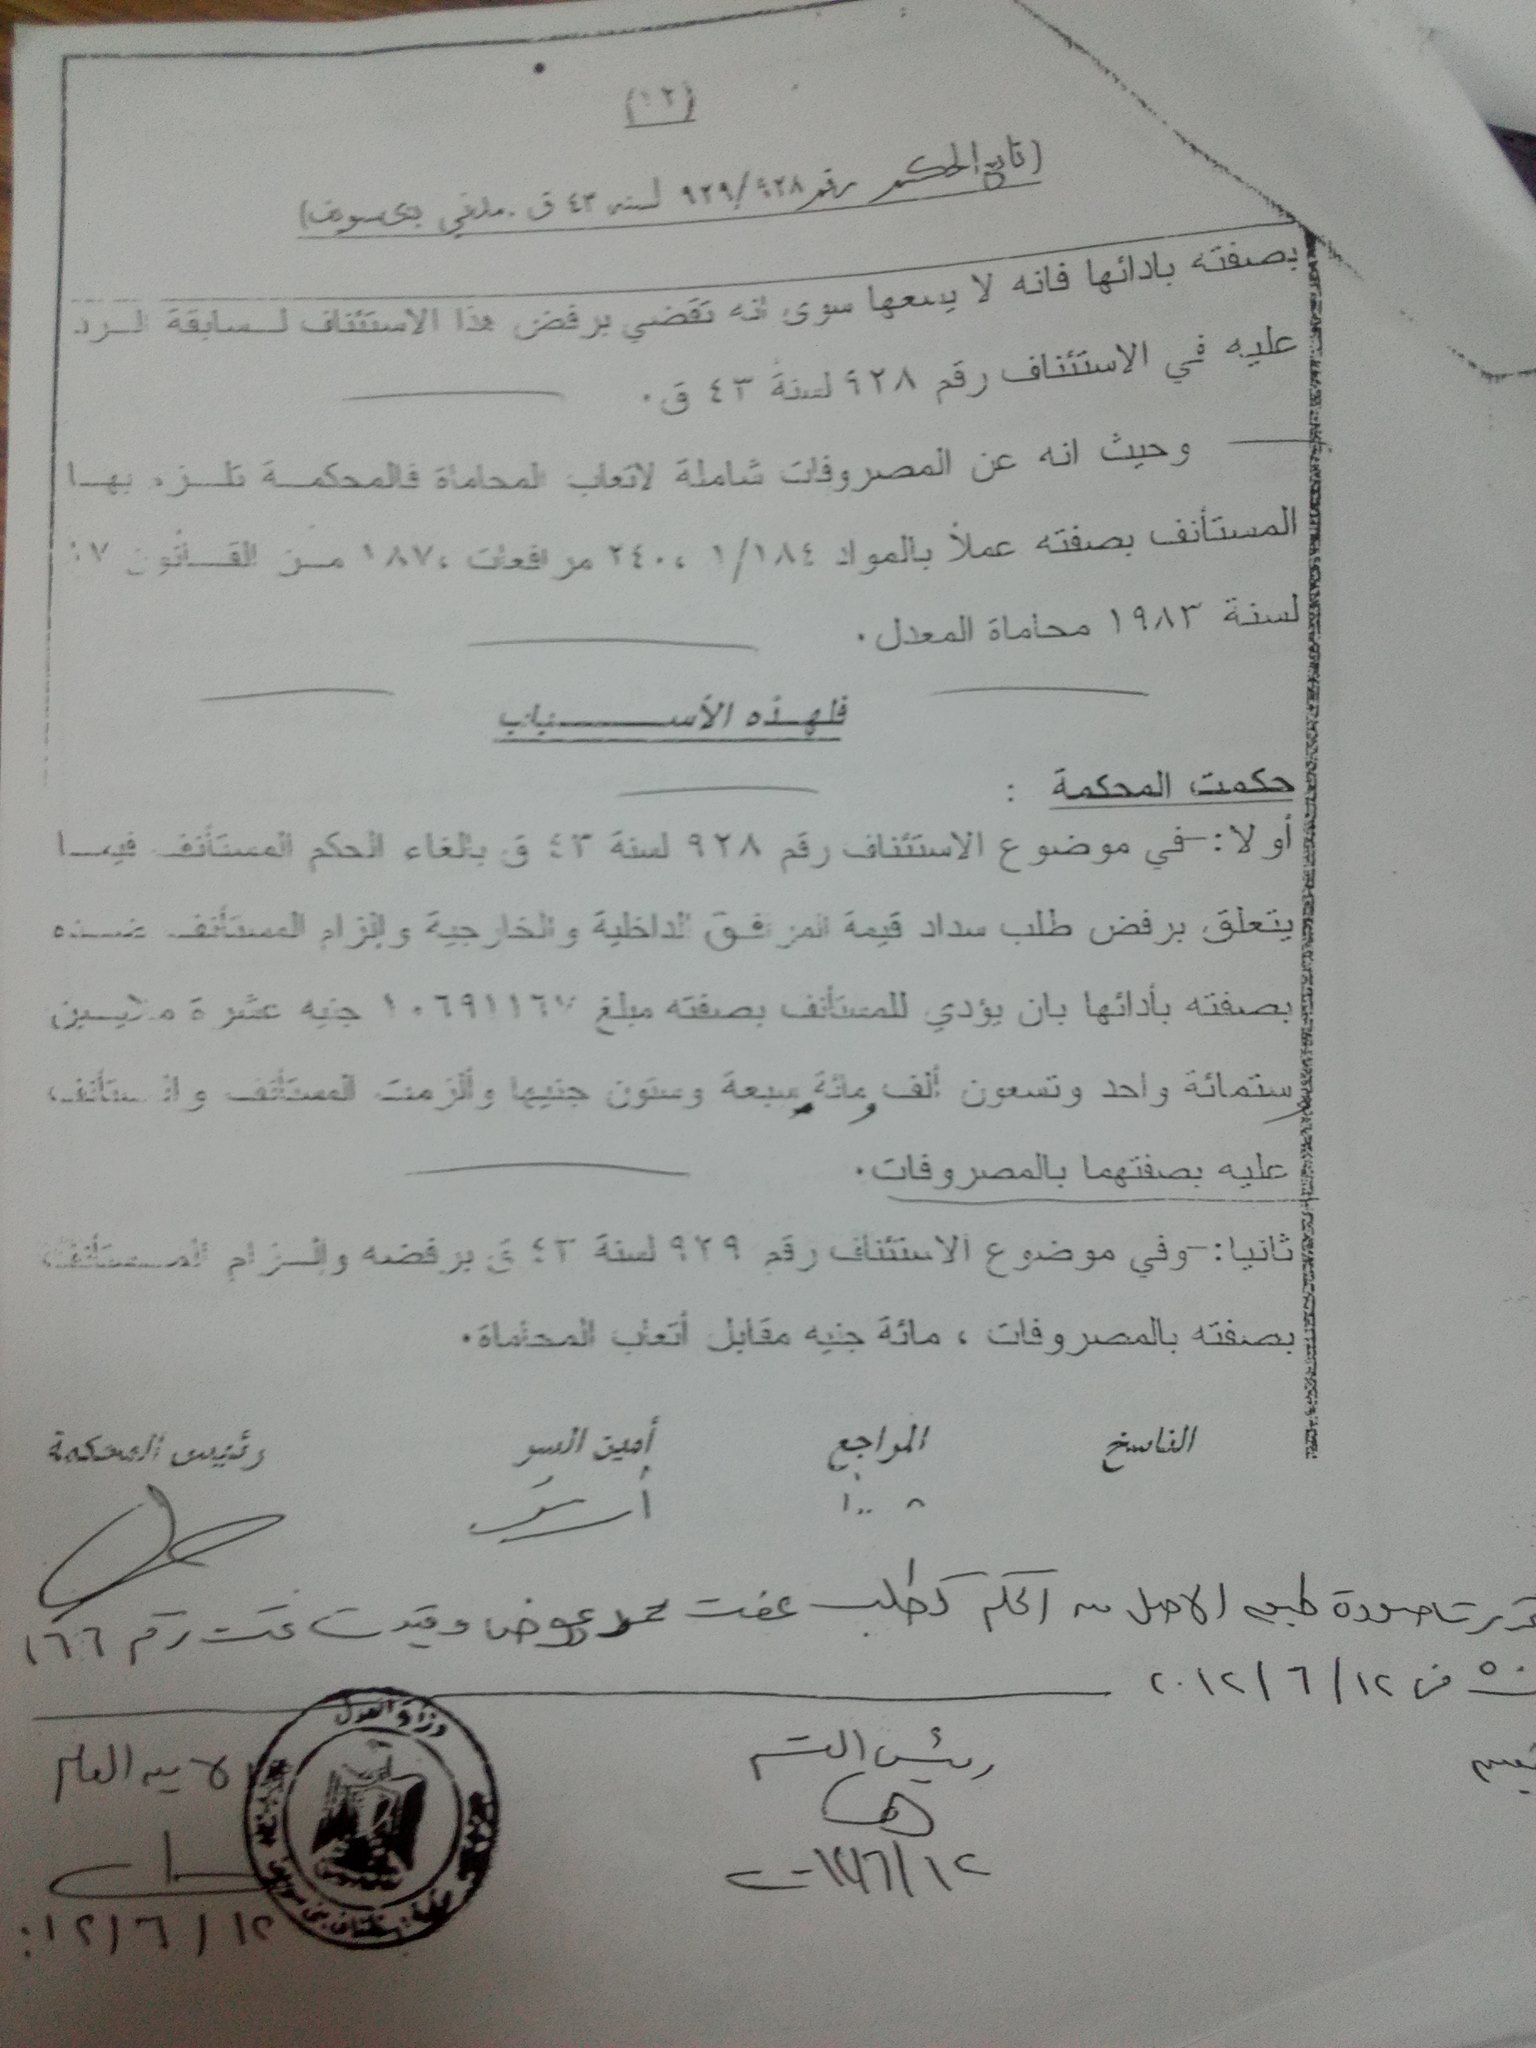 (١٢)
(تابع الحكم رقم ٩٢٩/٩٢٨ لسنه ٤٣ ق . مدني بني سويف)
بصفته بادائها فانه لا يسعها سوى انه تقضي برفض هذا الاستئناف لسابقة الرد
عليه في الاستئناف رقم ٩٢٨ لسنة ٤٣ ق.
وحيث انه عن المصروفات شاملة لاتعاب المحاماة فالمحكمة تلزم بها
المستأنف بصفته عملاً بالمواد ١/١٨٤ ، ٢٤٠ مرافعات ، ١٨٧ من القانون
لسنة ١٩٨٣ محاماة المعدل .
فلهذه الأسباب
حكمت المحكمة :
أولا :- في موضوع الاستئناف رقم ٩٢٨ لسنة ٤٣ ق بالغاء الحكم المستأنف فيما
يتعلق برفض طلب سداد قيمة المرافق الداخلية والخارجية والزام المستأنف ضده
بصفته بأدائها بان يؤدي للمستأنف بصفته مبلغ ١٠٦٩١١٦٧ جنيه عشرة ملايين
ستمائة واحد وتسعون ألف ومائة سبعة وستون جنيها وألزمت المستأنف والمستأنف
عليه بصفتهما بالمصروفات .
ثانيا :- وفي موضوع الاستئناف رقم ٩٢٩ لسنة ٤٣ ق برفضه والزام المستأنف
بصفته بالمصروفات ، مائة جنيه مقابل أتعاب المحاماة.
الناسخ المراجع أمين السر رئيس المحكمة
صورة طبق الاصل من الحكم كطلب عفت محمد عوض وقيدت تحت رقم ١٦٦
في ٢٠١٢/٦/١٢
رئيس القسم
الامين العام
١٢/٦/
وزارة العدل
محكمة استئناف بنى سويف